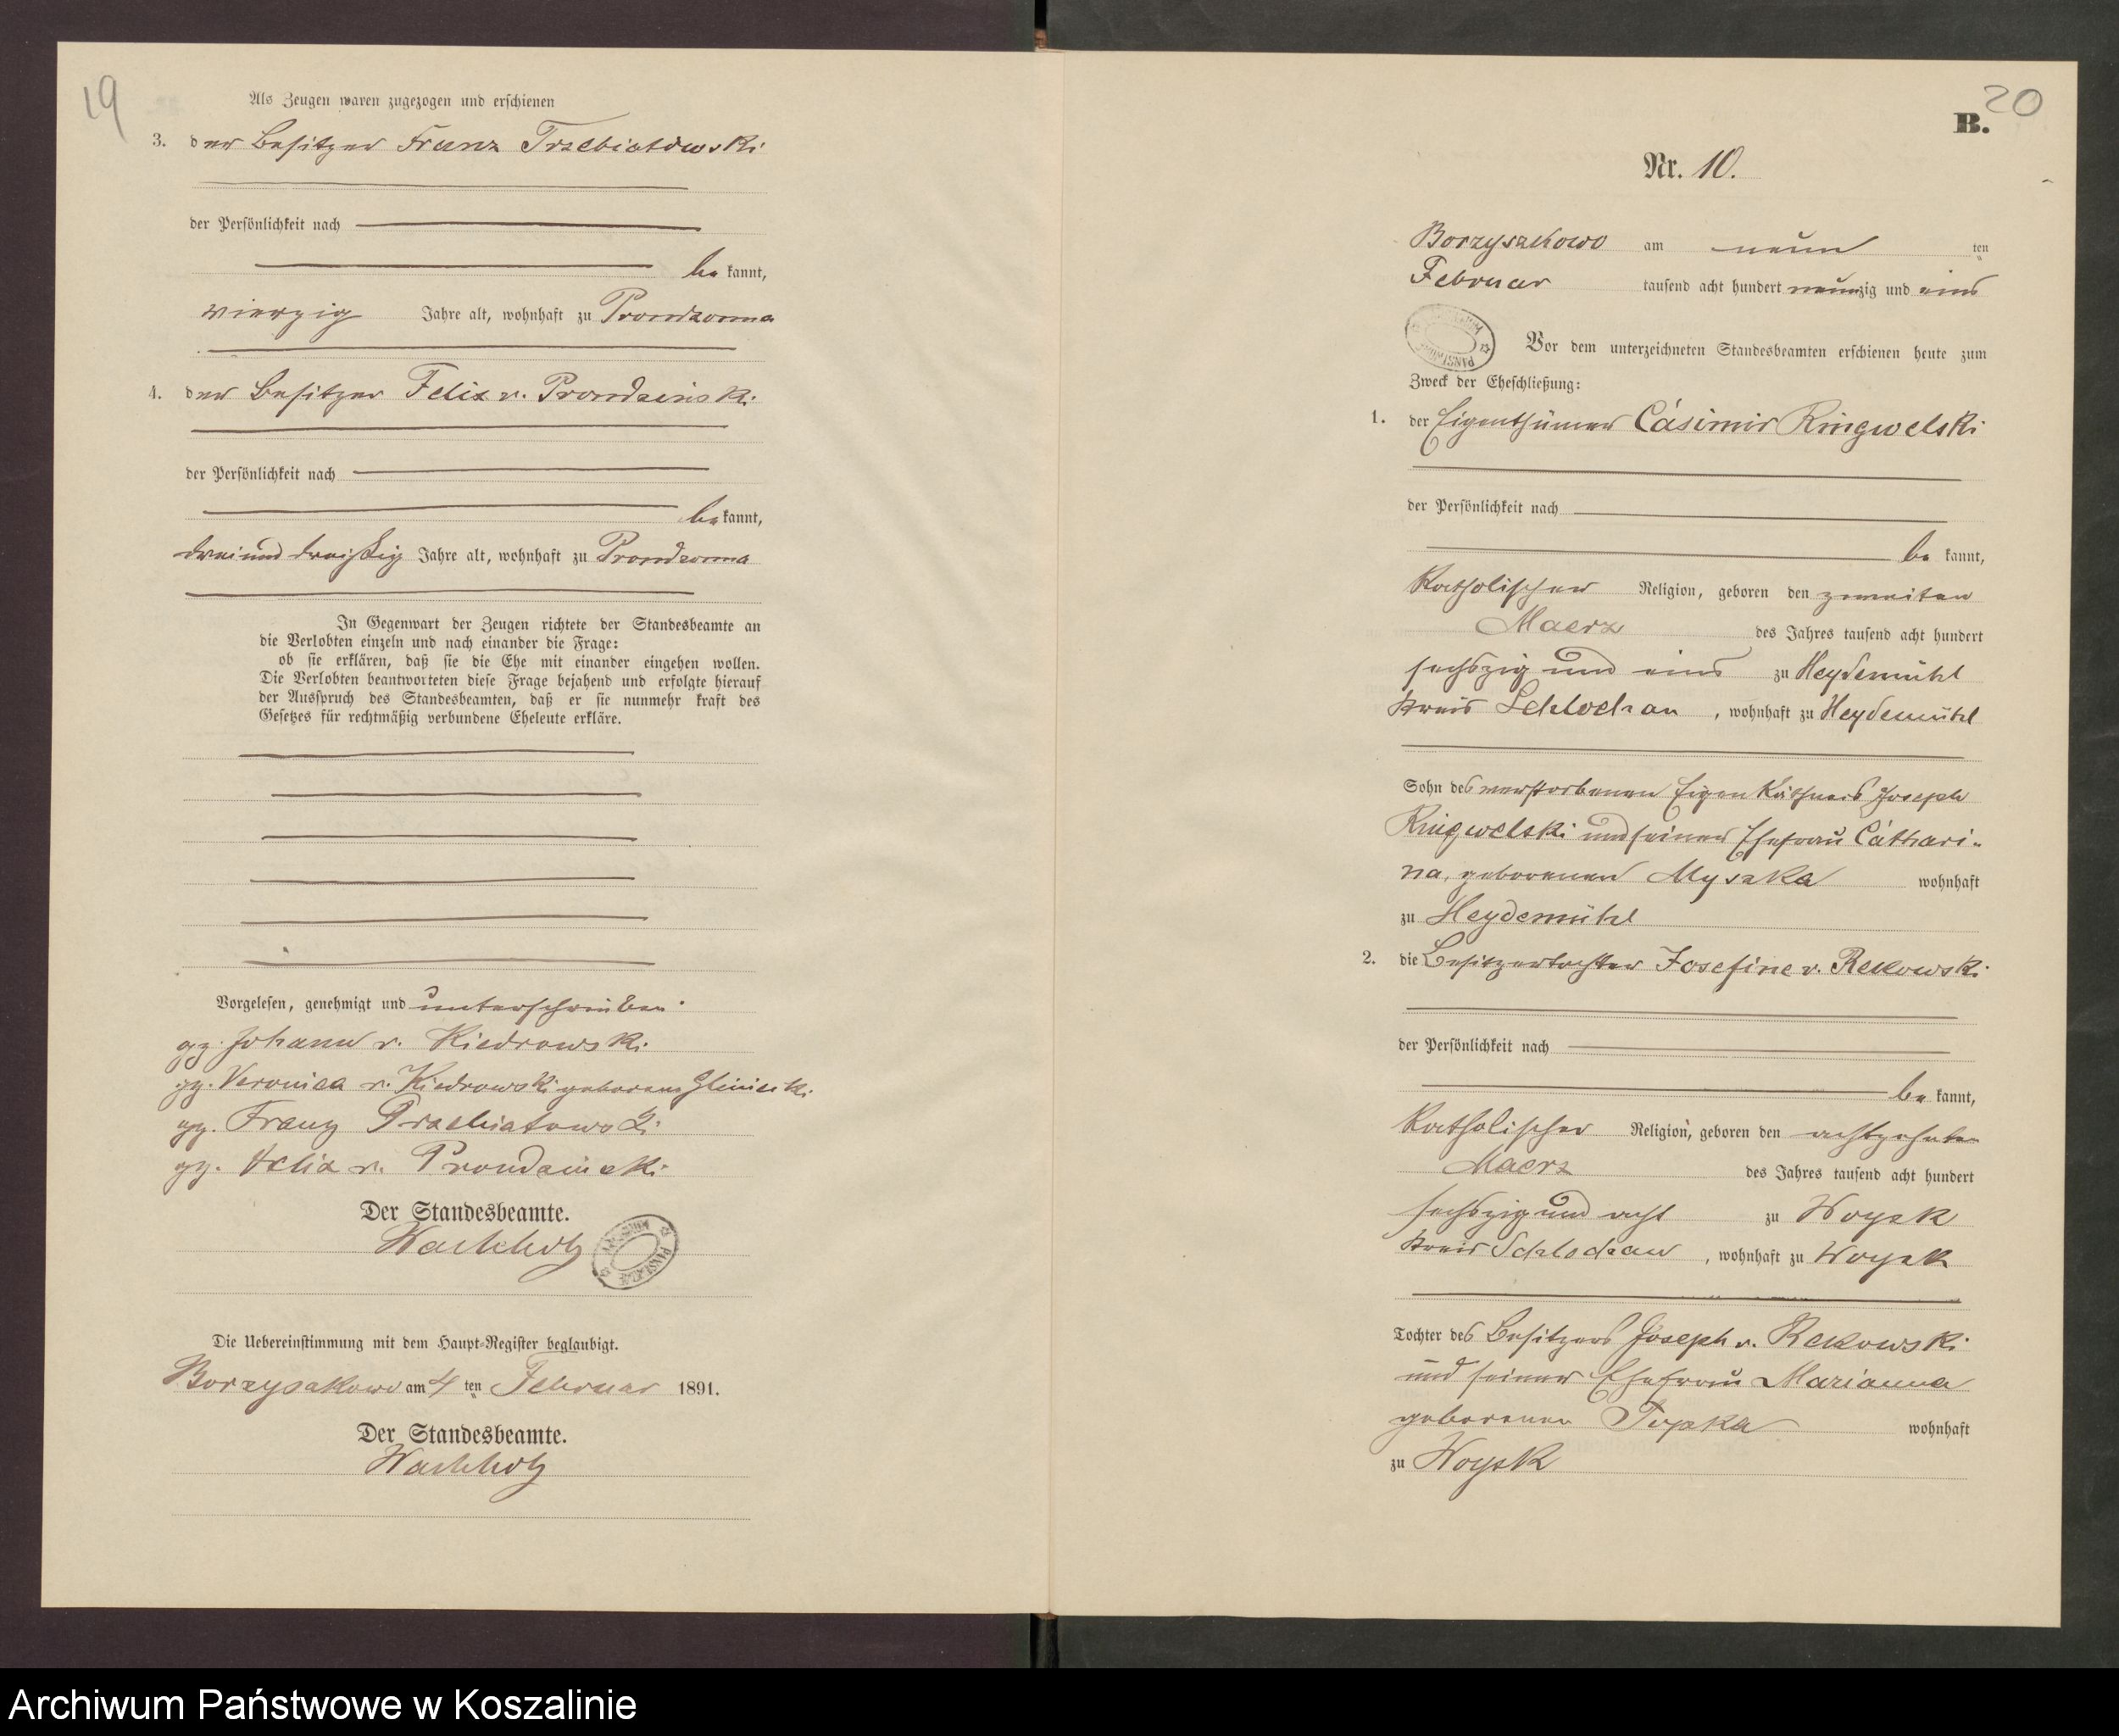 19
Als Zeugen waren zugezogen und erschienen
3. der Besitzer Franz Trzebiatowski
der Persönlichkeit nach
be kannt,
vierzig Jahre alt, wohnhaft zu Prondzonna
4. der Besitzer Felix v. Prondzinski
der Persönlichkeit nach
be kannt,
dreiund dreißig Jahre alt, wohnhaft zu Prondzonna
In Gegenwart der Zeugen richtete der Standesbeamte an
die Verlobten einzeln und nach einander die Frage:
ob sie erklären, daß sie die Ehe mit einander eingehen wollen.
Die Verlobten beantworteten diese Frage bejahend und erfolgte hierauf
der Ausspruch des Standesbeamten, daß er sie nunmehr kraft des
Gesetzes für rechtmäßig verbundene Eheleute erkläre.
Vorgelesen, genehmigt und unterschrieben
gz. Johann v. Kiedrowski
gz. Veronica v. Kiedrowski geborene Glinicki
gz. Franz Trzebiatowski
gz. Felix v. Prondzinski
Der Standesbeamte.
Wachholz
Die Uebereinstimmung mit dem Haupt-Register beglaubigt.
Borzyszkowo am 4 ten Februar 1891.
Der Standesbeamte.
Wachholz
20
B.
Nr. 10.
Borzyszkowo am neun ten
Februar tausend acht hundert neunzig und eins
Vor dem unterzeichneten Standesbeamten erschienen heute zum
Zweck der Eheschließung:
1. der Eigenthümer Casimir Ringwelski
der Persönlichkeit nach
be kannt,
katholischer Religion, geboren den zweiten
Maerz des Jahres tausend acht hundert
sechszig und eins zu Heydemühl
Kreis Schlochau, wohnhaft zu Heydemühl
Sohn des verstorbenen Eigenkäthners Joseph
Ringwelski und seiner Ehefrau Cathari-
na, geborenen Myszka wohnhaft
zu Heydemühl
2. die Besitzertochter Josefine v. Rekowski
der Persönlichkeit nach
be kannt,
katholischer Religion, geboren den achtzehnten
Maerz des Jahres tausend acht hundert
sechszig und acht zu Woysk
Kreis Schlochau, wohnhaft zu Woysk
Tochter des Besitzers Joseph v. Rekowski
und seiner Ehefrau Marianna
geborenen wohnhaft
zu Woysk
Archiwum Państwowe w Koszalinie